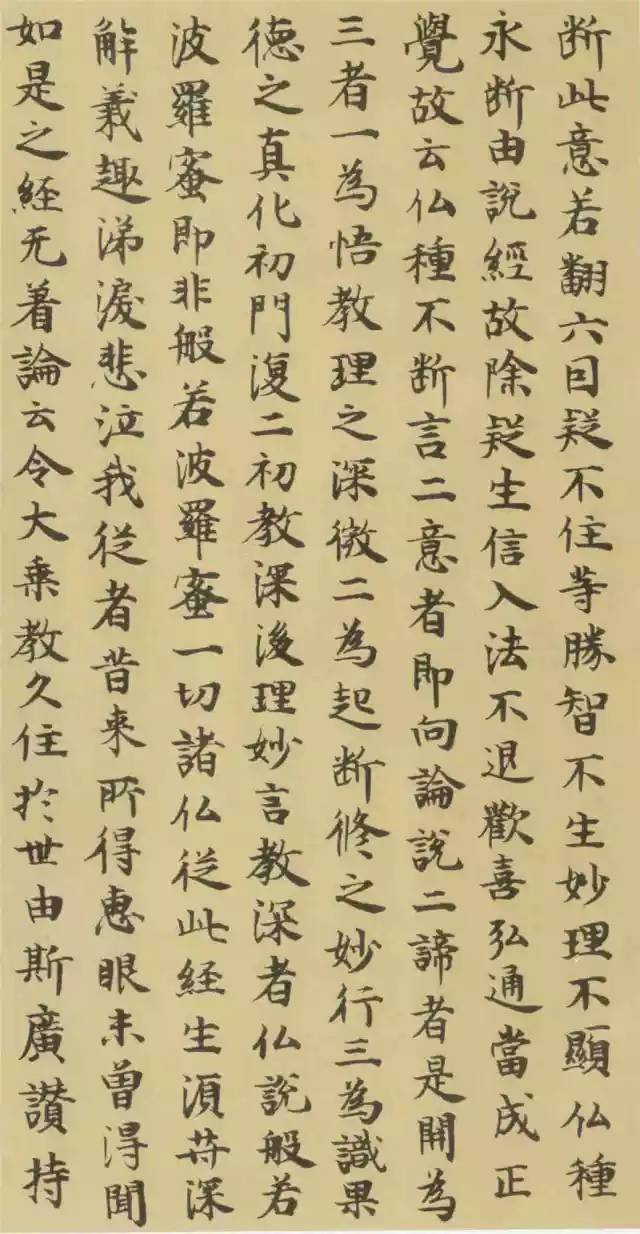 断此意若翻六因疑不住等勝智不生妙理不顯仏種
永断由説經故除疑生信入法不退歡喜弘通當成正
覺故云仏種不断言二意者即向論説二諦者是開為
三者一為悟教理之深微二為起断脩之妙行三為識果
德之真化初門復二初教深後理妙言教深者仏説般若
波羅蜜即非般若波羅蜜一切諸仏從此経生須菩深
解義趣涕淚悲泣我從者昔来所得惠眼未曾得聞
如是之経无着論云令大乗教久住於世由斯廣讃持